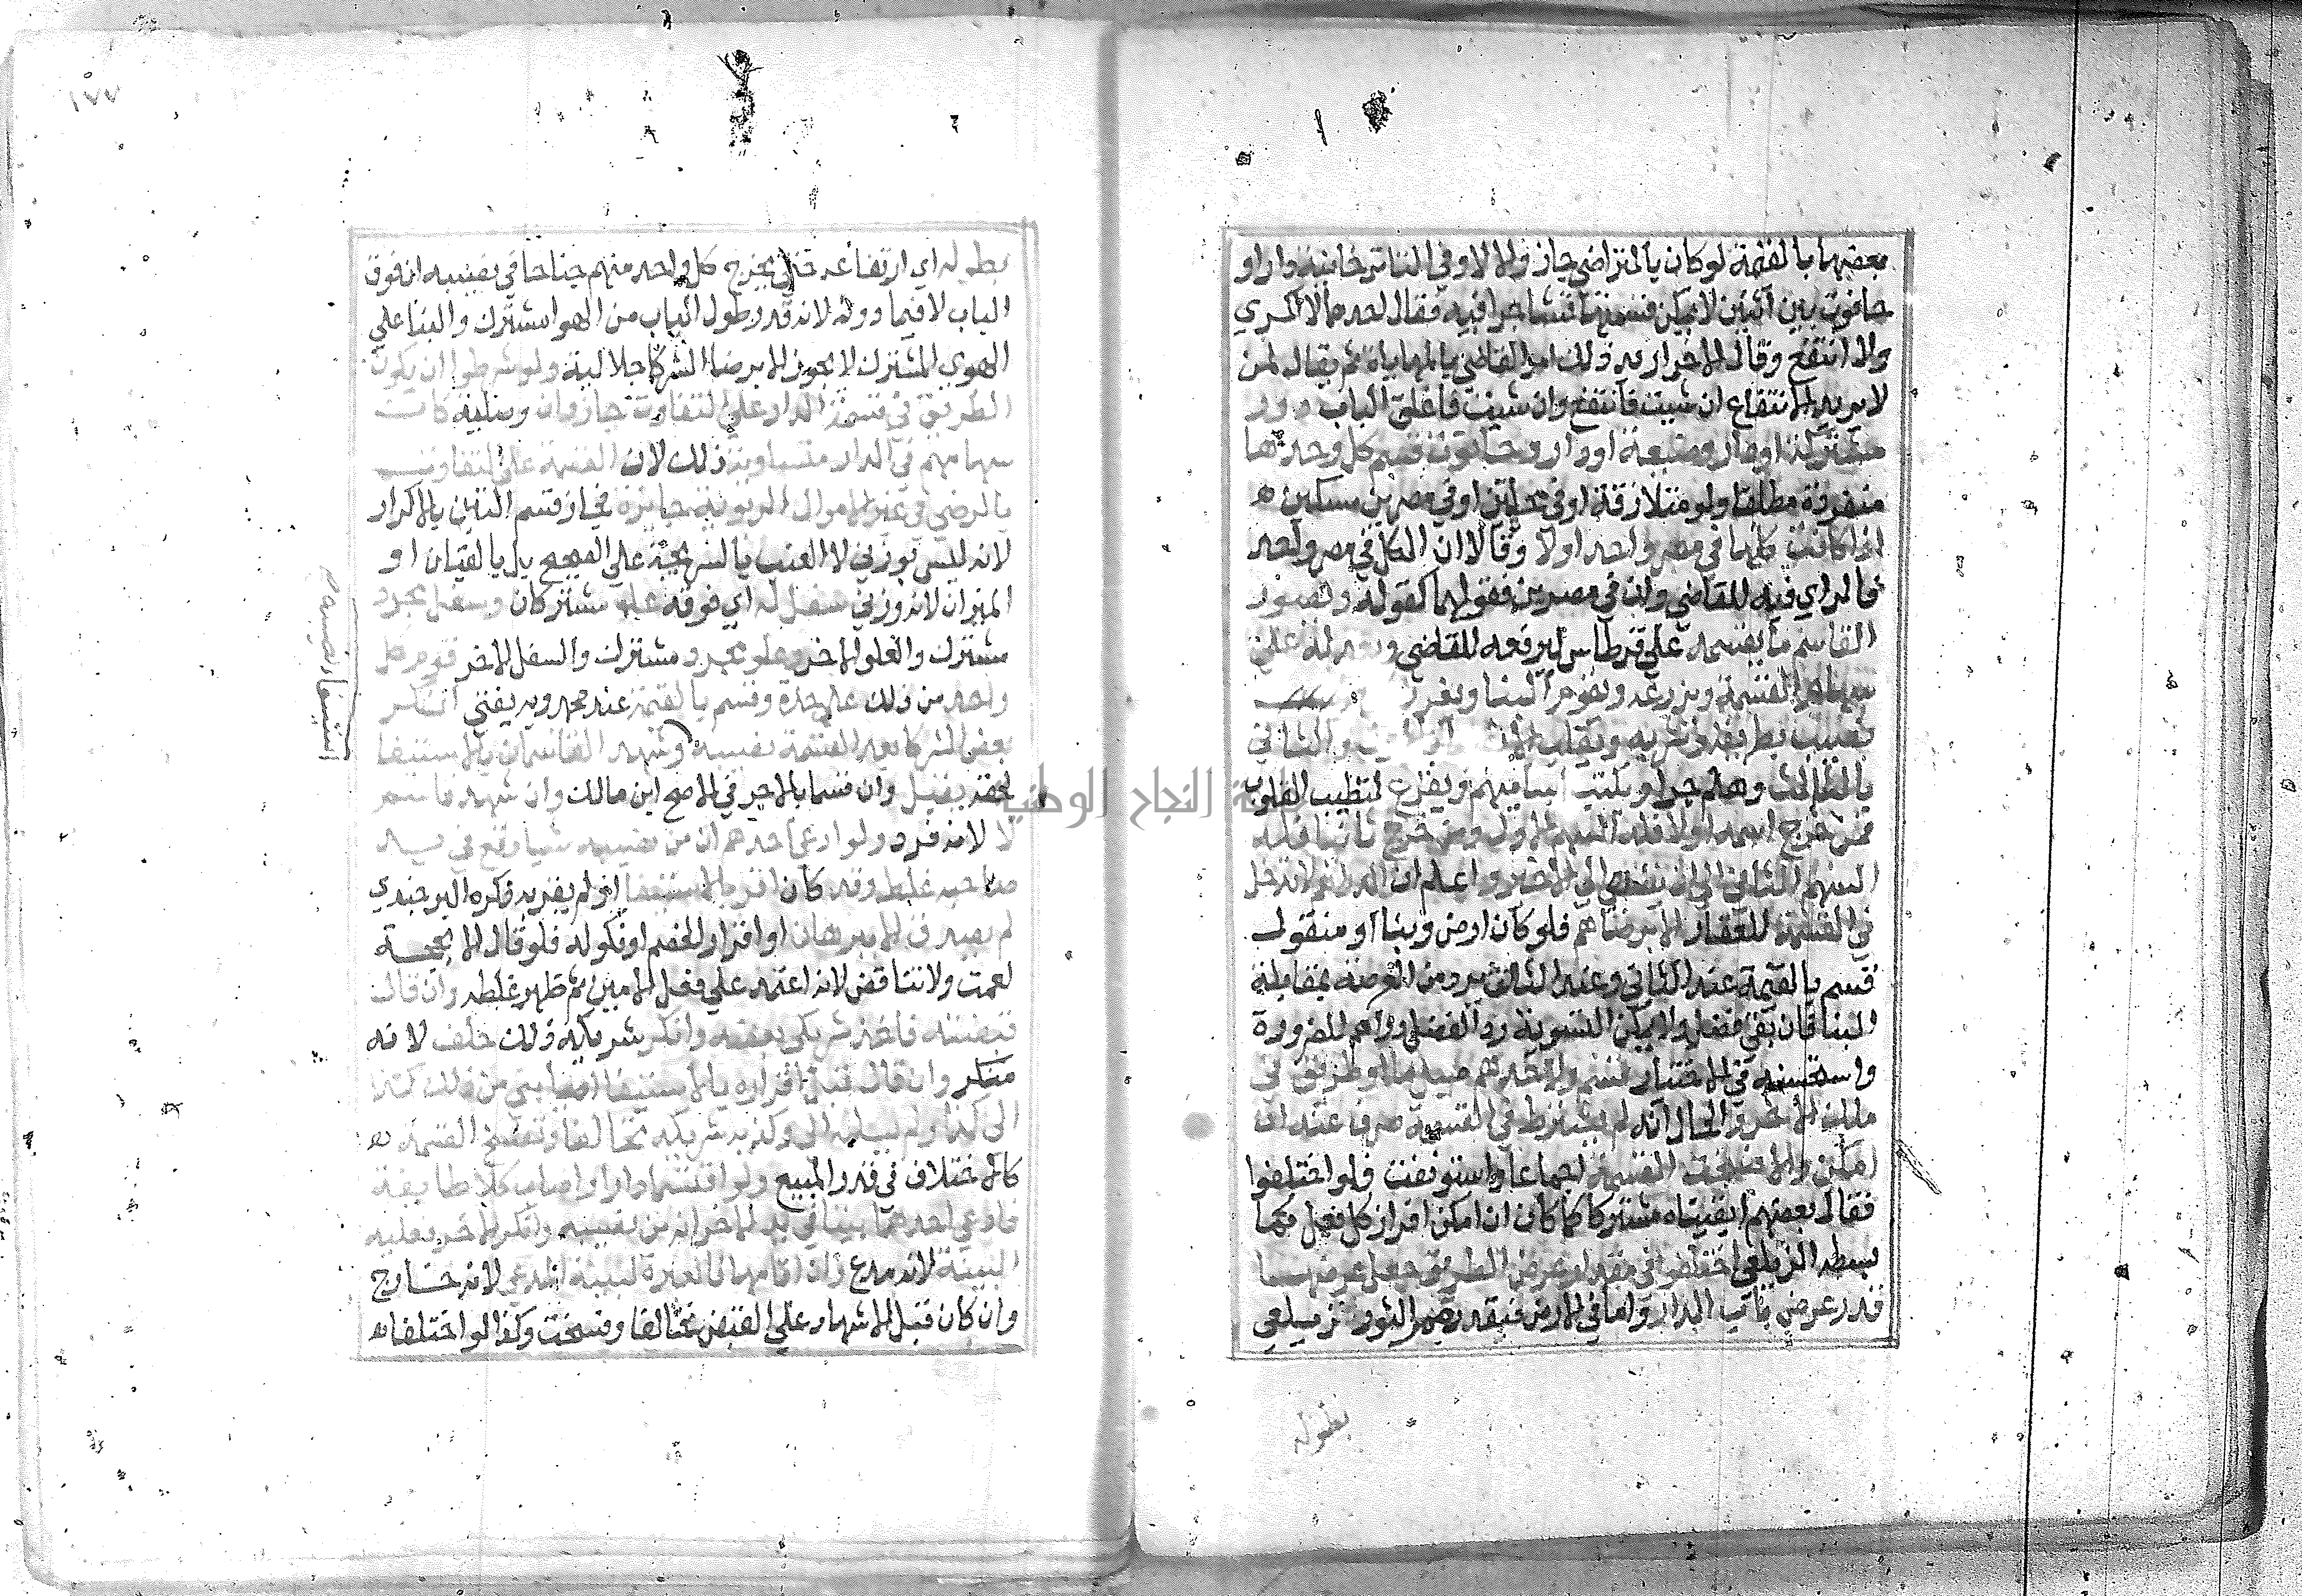 بعضها بالقيمة لو كان بالتراضي جاز والا لا وفي التاترخانية دار او
حانوت بين اثنين لا يمكن قسمتها تشاجرا فيه فقال احدهما لا اكري
ولا انتفع وقال الاخر اريد ذلك امر القاضي بالمهاياة ثم يقال لمن
لا يريد الانتفاع ان شيت فانتفع وان شيت فاغلق الباب دور
مشتركة او دار وضيعة او دار وحانوت قسم كل وحدها
منفردة مطلقا ولو متلازقة او في محلتين او في مصرين مسكين
اذا كانت كلها في مصر واحد او لا وقالا ان الكل في مصر واحد
فالراي فيه للقاضي وان في مصرين فقولهما كقوله ويصور
القاسم ما يقسمه على قرطاس ليرفعه للقاضي ويعدله على
سهام القسمة ويذرعه ويقوم البنا ويفرز كل
نصيب بطريقه وشربه ويلقب الاول والثاني
بالثالث وهلم جرا ويكتب اساميهم ويقرع لتطيب القلوب
فمن خرج اسمه اولا فله السهم الاول ومن خرج ثانيا فله
السهم الثاني الى ان ينتهي الى الاخير واعلم ان الدراهم لا تدخل
في القسمة للعقار الا برضاهم فلو كان ارض وبنا او منقول
قسم بالقيمة عند الثاني وعند الثالث يرد من العرصة بمقابلة
البنا فان بقي فضل ولا يمكن التسوية رد الفضل دراهم للضرورة
واستحسنه في الاختيار قسم ولاحدهم مسيل ما او طريق في
ملك الاخر والحال انه لم يشترط في القسمة صرف عنه ان
امكن والا فسخت القسمة اجماعا واستونفت فلو اختلفوا
فقال بعضهم ابقيناه مشتركا كما كان ان امكن افراز كل فعل كما
بسطه الزيلعي اختلفوا في مقدار عرض الطريق جعل عرضها
قدر عرض باب الدار واما في الارض فبقدر ممر الثور زيلعي
بطوله
١٧٧
بطوله اي ارتفاعه حتى يخرج كل واحد منهم جناحا في نصيبه ان فوق
الباب لا فيما دونه لان قدر طول الباب من الهوا مشترك والبنا على
الهوي المشترك لا يجوز الا برضا الشركا جلالية ولو شرطوا ان يكون
الطريق في قسمة الدار على التفاوت جاز وان وصلية كانت
سهامهم في الدار متساوية ذلك لان القسمة على التفاوت
بالرضى في غير الاموال الربوية جايزة فجاز قسم التين بالاكرار
لانه ليس بوزني لا العنب بالشريجة على الصحيح بل بالقبان او
الميزان لانه وزني سفل له اي فوقه علو مشتركان وسفل مجرد
مشترك والعلو لاخر وعلو مجرد مشترك والسفل لاخر قوم كل
واحد من ذلك على حدة وقسم بالقيمة عند محمد وبه يفتى انكر
بعض الشركا بعد القسمة نصيبه وشهد القاسمان بالاستيفا
لحقه يقبل وان قسما بالاجر في الاصح ابن مالك وان شهد قاسم
لا لانه فرد ولو ادعى احدهم ان من نصيبه شيا وقع في يد
صاحبه غلطا وقد كان اقر بالاستيفا او لم يقر به ذكره البرجندي
لم يصدق الا ببرهان او اقرار الخصم او نكوله فلو قال لا بحجة
لعمت ولا تناقض لانه اعتمد على فعل الامين ثم ظهر غلطه وان قال
قبضته فاخذ شريكي بعضه وانكر شريكه ذلك حلف لانه
منكر وان قال قبل اقراره بالاستيفا اصابني من ذلك كذا
الى كذا ولم يسلمه الي وكذبه شريكه تحالفا وتفسخ القسمة
كالاختلاف في قدر المبيع ولو اقتسما دارا واصاب كلا طايفة
فادعى احدهما بيتا في يد الاخر انه من نصيبه وانكر الاخر فعليه
البينة لانه مدع وان اقاماها فالعبرة لبينة المدعي لانه خارج
وان كان قبل الاشهاد على القبض تحالفا وفسخت وكذا لو اختلفا